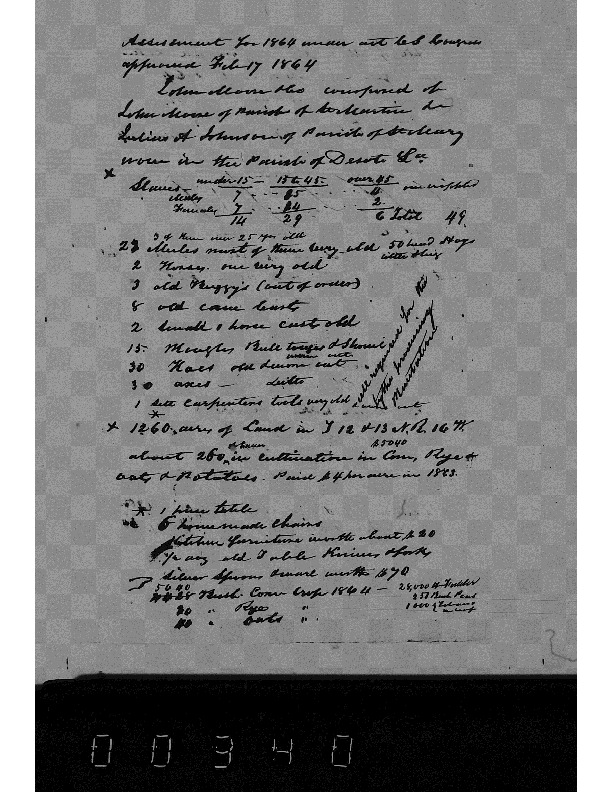 Assessment for 1864 under act C S Congress
approved Feb 17 1864
John Moore & Co composed of
John Moore of Parish of St Martin &
Julius A Johnson of Parish of St Mary
now in the Parish of Desoto La
X Slaves under 15 — 15 to 45 over 45
Males 7 25 4 one crippled
Females 7 24 2
14 29 6 Total 49
3 of them over 25 yrs old
23 Mules most of them very old 50 head Hogs
2 Horses one very old little & big
3 old Buggy's (out of order)
8 old cane carts
2 small 1 horse carts old
15 Ploughs Bull tongues & Shovel
30 Hoes old & worn out
30 axes — ditto
1 sett carpenters tools very old
all required for the
plantation
X 1260 acres of Land in T 12 & 13 N. R. 16 W.
$5040
about 260 in cultivation in Corn, Rye &
oats & Potatoes. Paid $4 per acre in 1863.
* 1 table
6 home made chairs
Kitchen furniture worth about $20
1/2 doz old Table Knives & forks
Silver Spoons worth $70
5040
Bush. Corn Crop 1864 — 28,000 lb Fodder
250 Bush Peas
30 " Rye " 1000
40 " oats "
00340